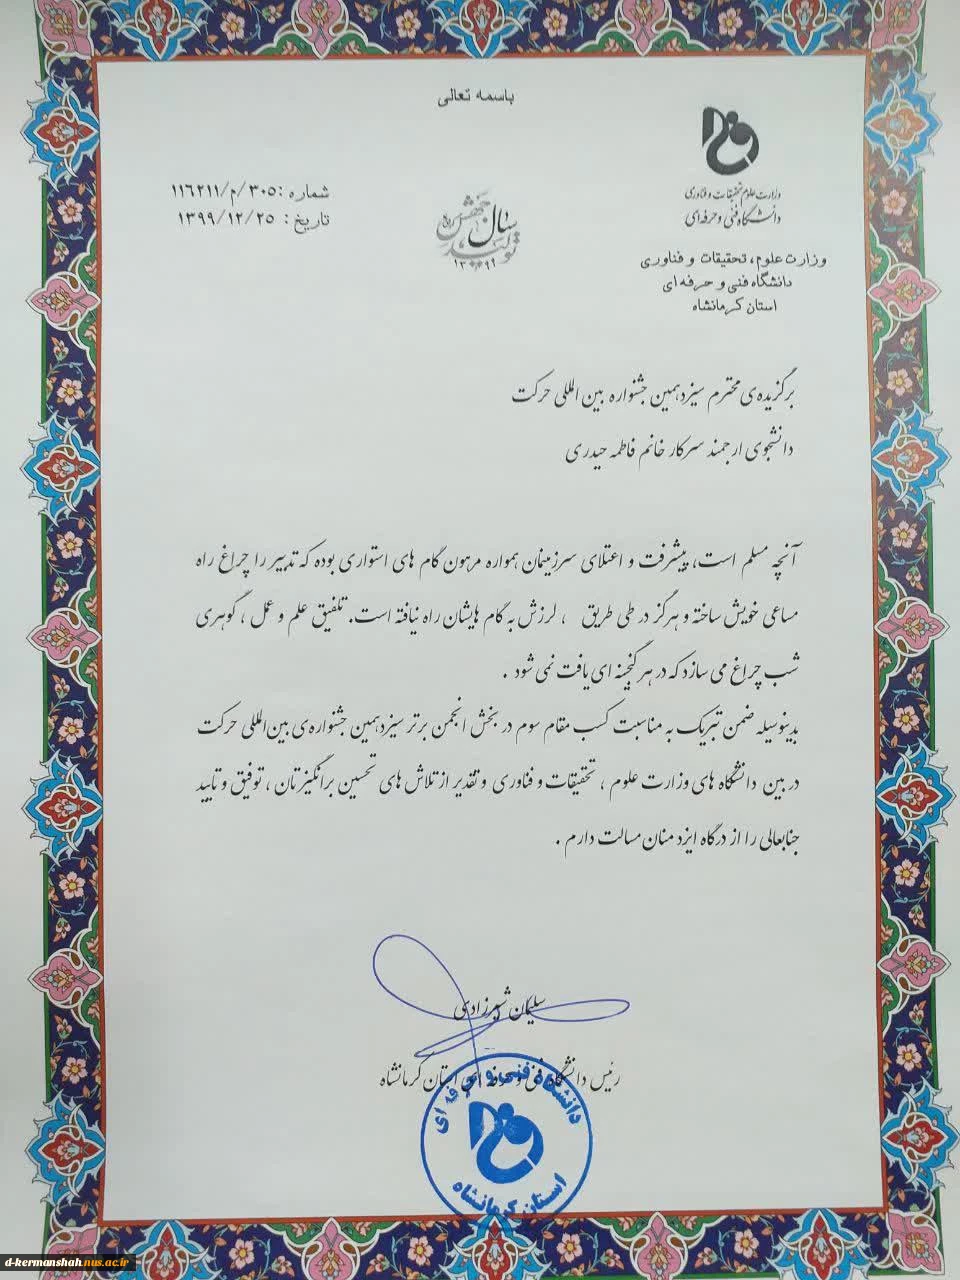 باسمه تعالی
وزارت علوم تحقیقات و فناوری
دانشگاه فنی و حرفه‌ای
وزارت علوم، تحقیقات و فناوری
دانشگاه فنی و حرفه ای
استان کرمانشاه
سال
جهش
تولید
۱۳۹۹
شماره :۳۰۵/م/۱۱۶۲۱۱
تاریخ: ۱۳۹۹/۱۲/۲۵
برگزیده‌ی محترم سیزدهمین جشنواره بین المللی حرکت
دانشجوی ارجمند سرکار خانم فاطمه حیدری
آنچه مسلم است، پیشرفت و اعتلای سرزمینمان همواره مرهون گام های استواری بوده که تدبیر را چراغ راه
مساعی خویش ساخته و هرگز در طی طریق ، لرزش به گام هایشان راه نیافته است. تلفیق علم و عمل ، گوهری
شب چراغ می سازد که در هر گنجینه ای یافت نمی شود .
بدینوسیله ضمن تبریک به مناسبت کسب مقام سوم در بخش انجمن برتر سیزدهمین جشنواره‌ی بین‌المللی حرکت
در بین دانشگاه های وزارت علوم ، تحقیقات و فناوری و تقدیر از تلاش های تحسین برانگیزتان ، توفیق و تایید
جنابعالی را از درگاه ایزد منان مسالت دارم .
سلیمان شیرزادی
رئیس دانشگاه فنی و حرفه ای استان کرمانشاه
دانشگاه فنی و حرفه ای
استان کرمانشاه
d-kermanshah.nus.ac.ir